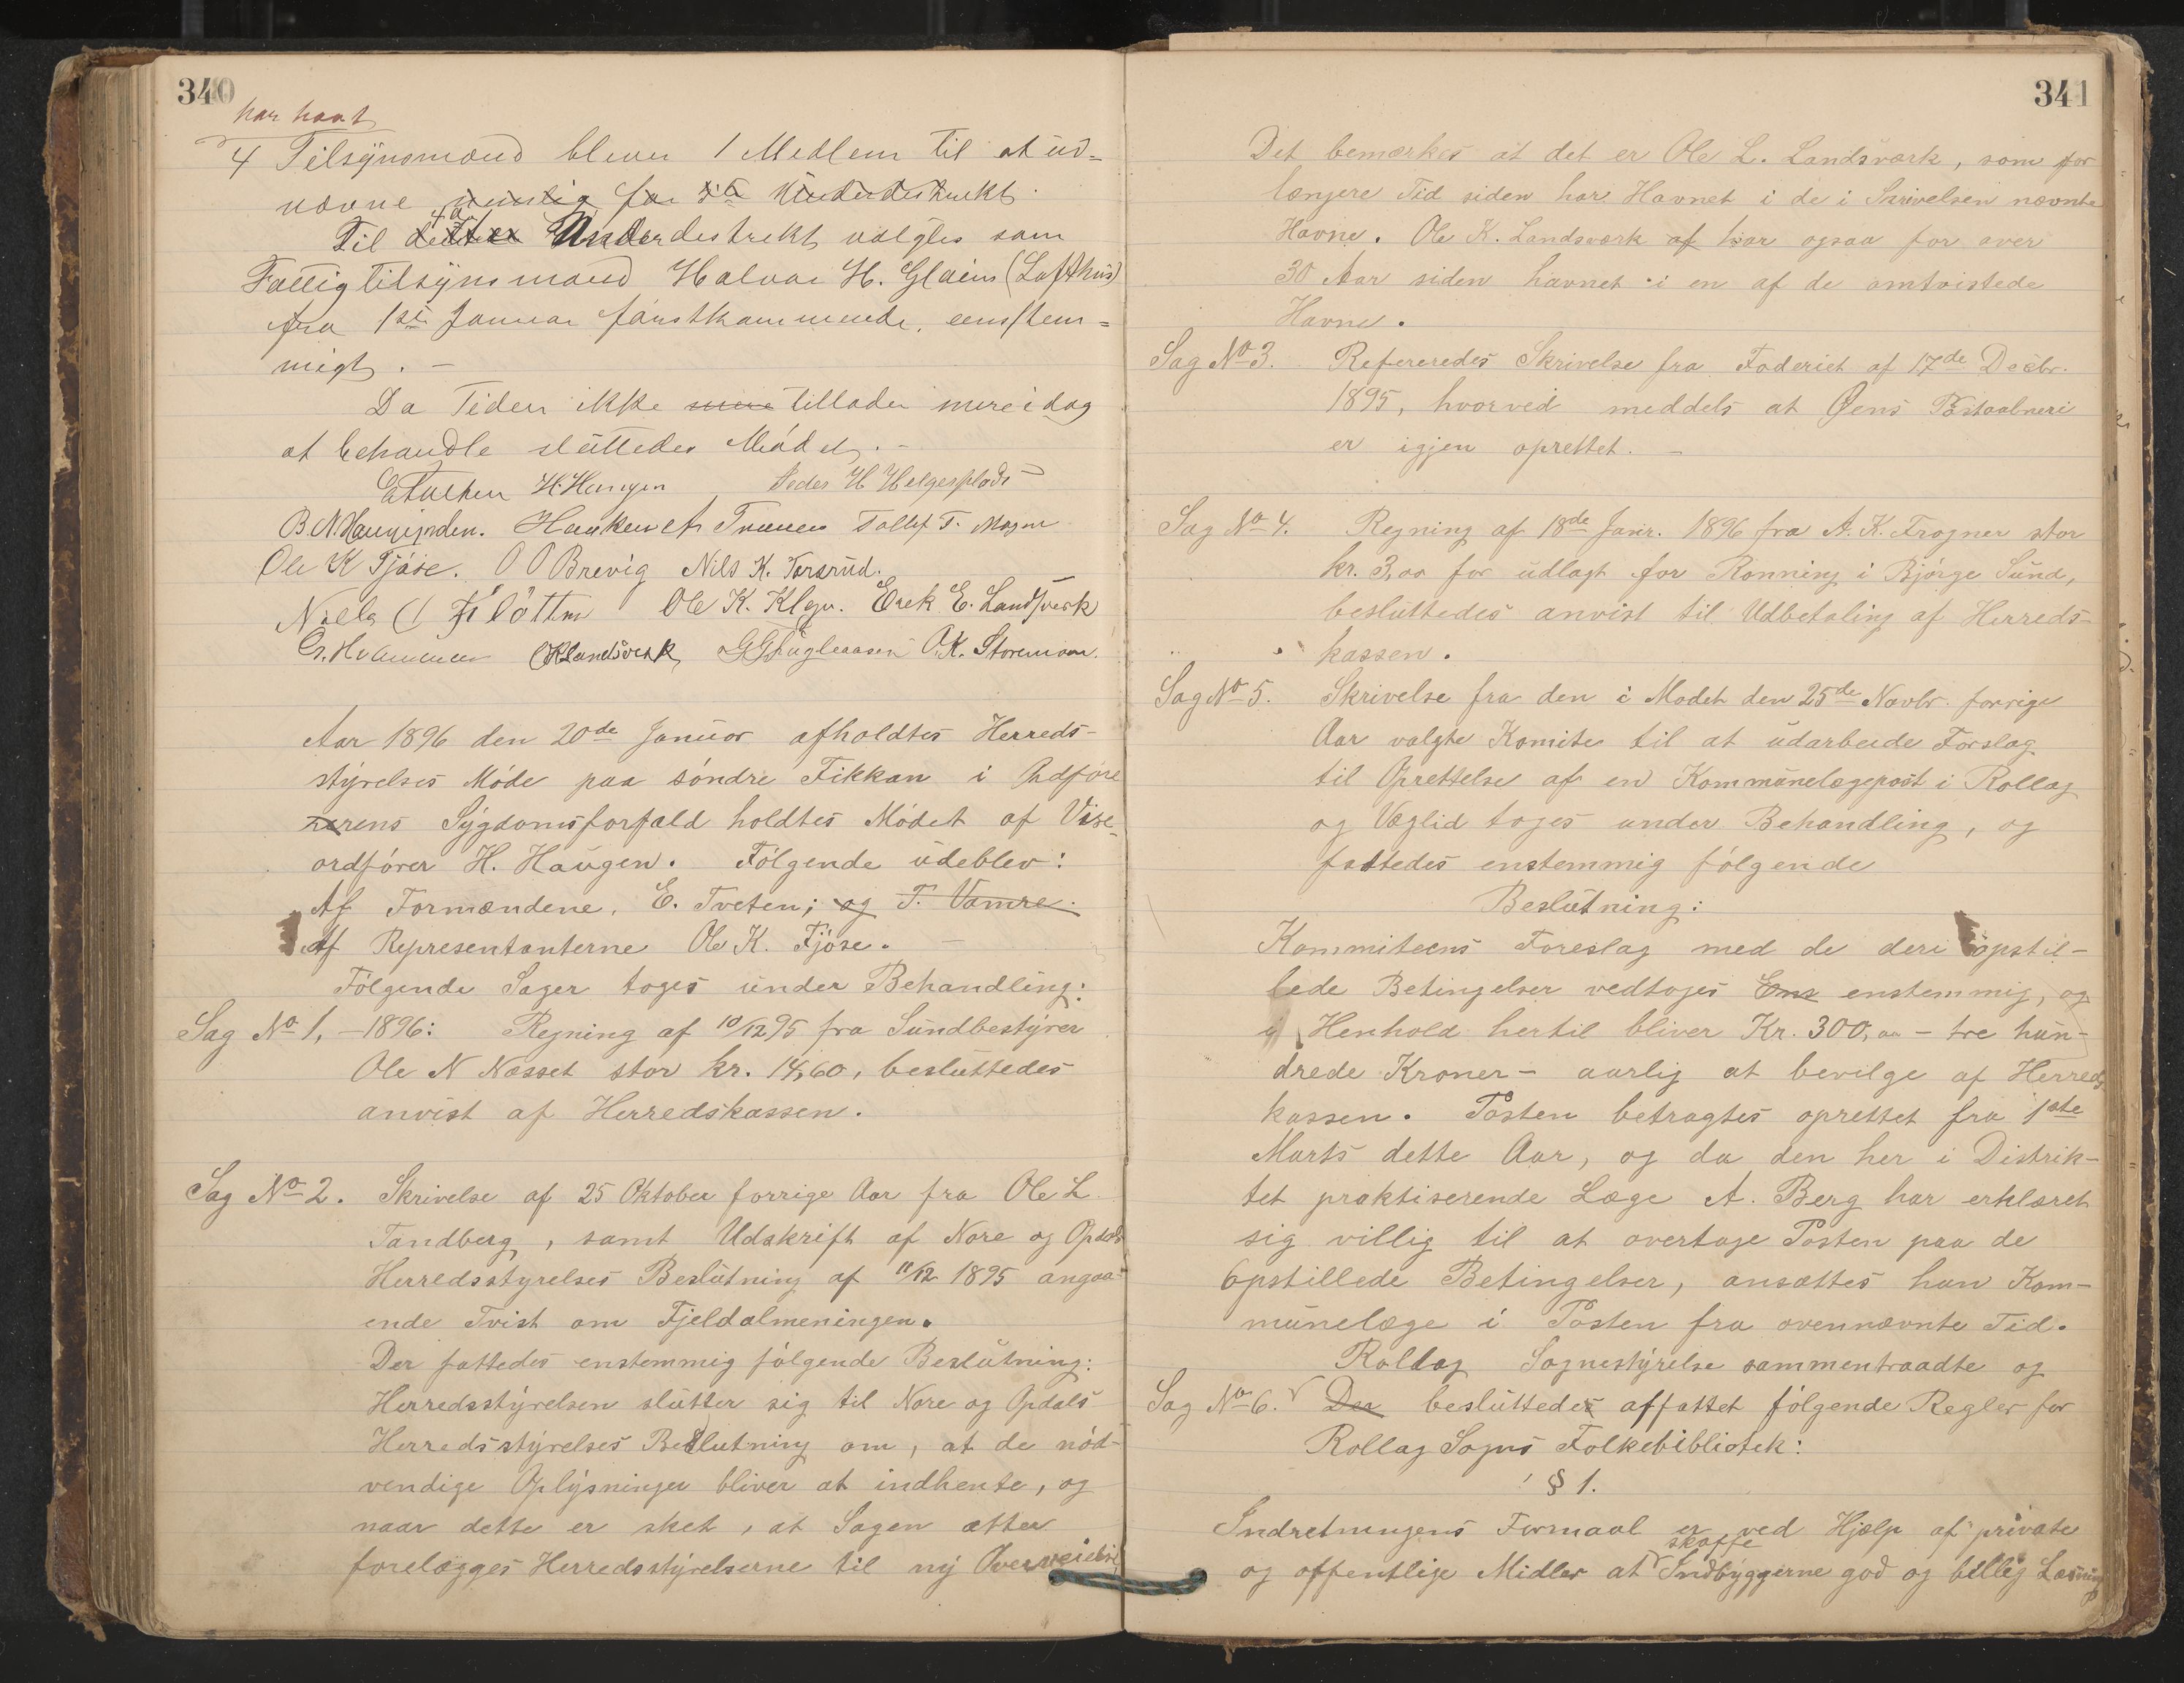 340
har havt
4 Tilsynsmænd bliver 1 Medlem til at ud=
nævne nemlig for 4de Underdestrekt.
Til dette 4de Underdestrekt valgtes som
Fattigtilsynsmand Halvor H. Glaim (Lofthus)
fra 1ste Januar førstkommende, eenstem=
migt. —
Da Tiden ikke mere tillader mere i dag
at behandle sluttedes Mødet. —
E Tveten H. Haugen Peder H Helgesplads
B. N. Tollef T. Mogen
Ole K Fjøse. O O Brevig Nils K. Torsrud.
Niels Fløttm Ole K. Erek E. Landsverk
OKLandsverk A. K. Storemoen.
Aar 1896 den 20de Januar afholdtes Herreds-
styrelses Møde paa søndre Fikkan i Ordføre
rerens Sygdomsforfald holdtes Mødet af Vise-
ordfører H. Haugen. Følgende udeblev:
Af Formændene, E. Tveten; og T. Vamre.
Af Representanterne Ole K. Fjøse. —
Følgende Sager toges under Behandling:
Sag No 1, — 1896: Regning af 10/12 95 fra Sundbestyrer
Ole N Næsset stor kr. 14,60, besluttedes
anvist af Herredskassen.
Sag No 2. Skrivelse af 25 Oktober forrige Aar fra Ole L
Tandberg, samt Udskrift af Nore og Opdals
Herredsstyrelses Beslutning af 11/12 1895 angaa-
ende Tvist om Fjeldalmeningen.
Der fattedes enstemmig følgende Beslutning:
Herredsstyrelsen slutter sig til Nore og Opdals
Herredsstyrelses Beslutning om, at de nød-
vendige Oplysninger bliver at indhente, og
naar dette er sket, at Sagen atter
forelægges Herredsstyrelserne til ny Overveielse
341
Det bemærkes at det er Ole L. Landsværk, som for
længere Tid siden har Havnet i de i Skrivelsen nævnte
Havne. Ole K. Landsværk af har ogsaa for over
30 Aar siden havnet i en af de omtvistede
Havne.
Sag No 3. Refereredes Skrivelse fra Foderiet af 17de Decbr.
1895, hvorved meddels at Øens Postaabneri
er igjen oprettet. —
Sag No 4. Regning af 18de Janr. 1896 fra A. K. Frogner stor
kr. 3,00 for udlagt for Ronning i Bjørge Sund,
besluttedes anvist til Udbetaling af Herreds-
kassen.
Sag No 5. Skrivelse fra den i Modet den 25de Novbr. forrige
Aar valgte Komite til at udarbeide Forslag
til Oprettelse af en Kommunelægepost i Rollag
og Væglid toges under Behandling, og
fattedes enstemmig følgende
Beslutning:
Kommiteens Foreslag med de deri opstil-
lede Betingelser vedtoges Ens enstemmig, og
i Henhold hertil bliver Kr. 300,00 — tre hun-
drede Kroner — aarlig at bevilge af Herreds
kassen. Posten betragtes oprettet fra 1ste
Marts dette Aar, og da den her i Distrik-
tet praktiserende Læge A. Berg har erklæret
sig villig til at overtage Posten paa de
Opstillede Betingelser, ansættes han Kom-
munelæge i Posten fra ovennævnte Tid.
Rollag Sognestyrelse sammentraadte og
Sag No 6. Der besluttedes affattet følgende Regler for
Rollag Sogns Folkebibliotek:
§ 1.
Indretningens Formaal er ved Hjælp af private
skaffe
og offentlige Midler at Indbyggerne god og billig Læsning